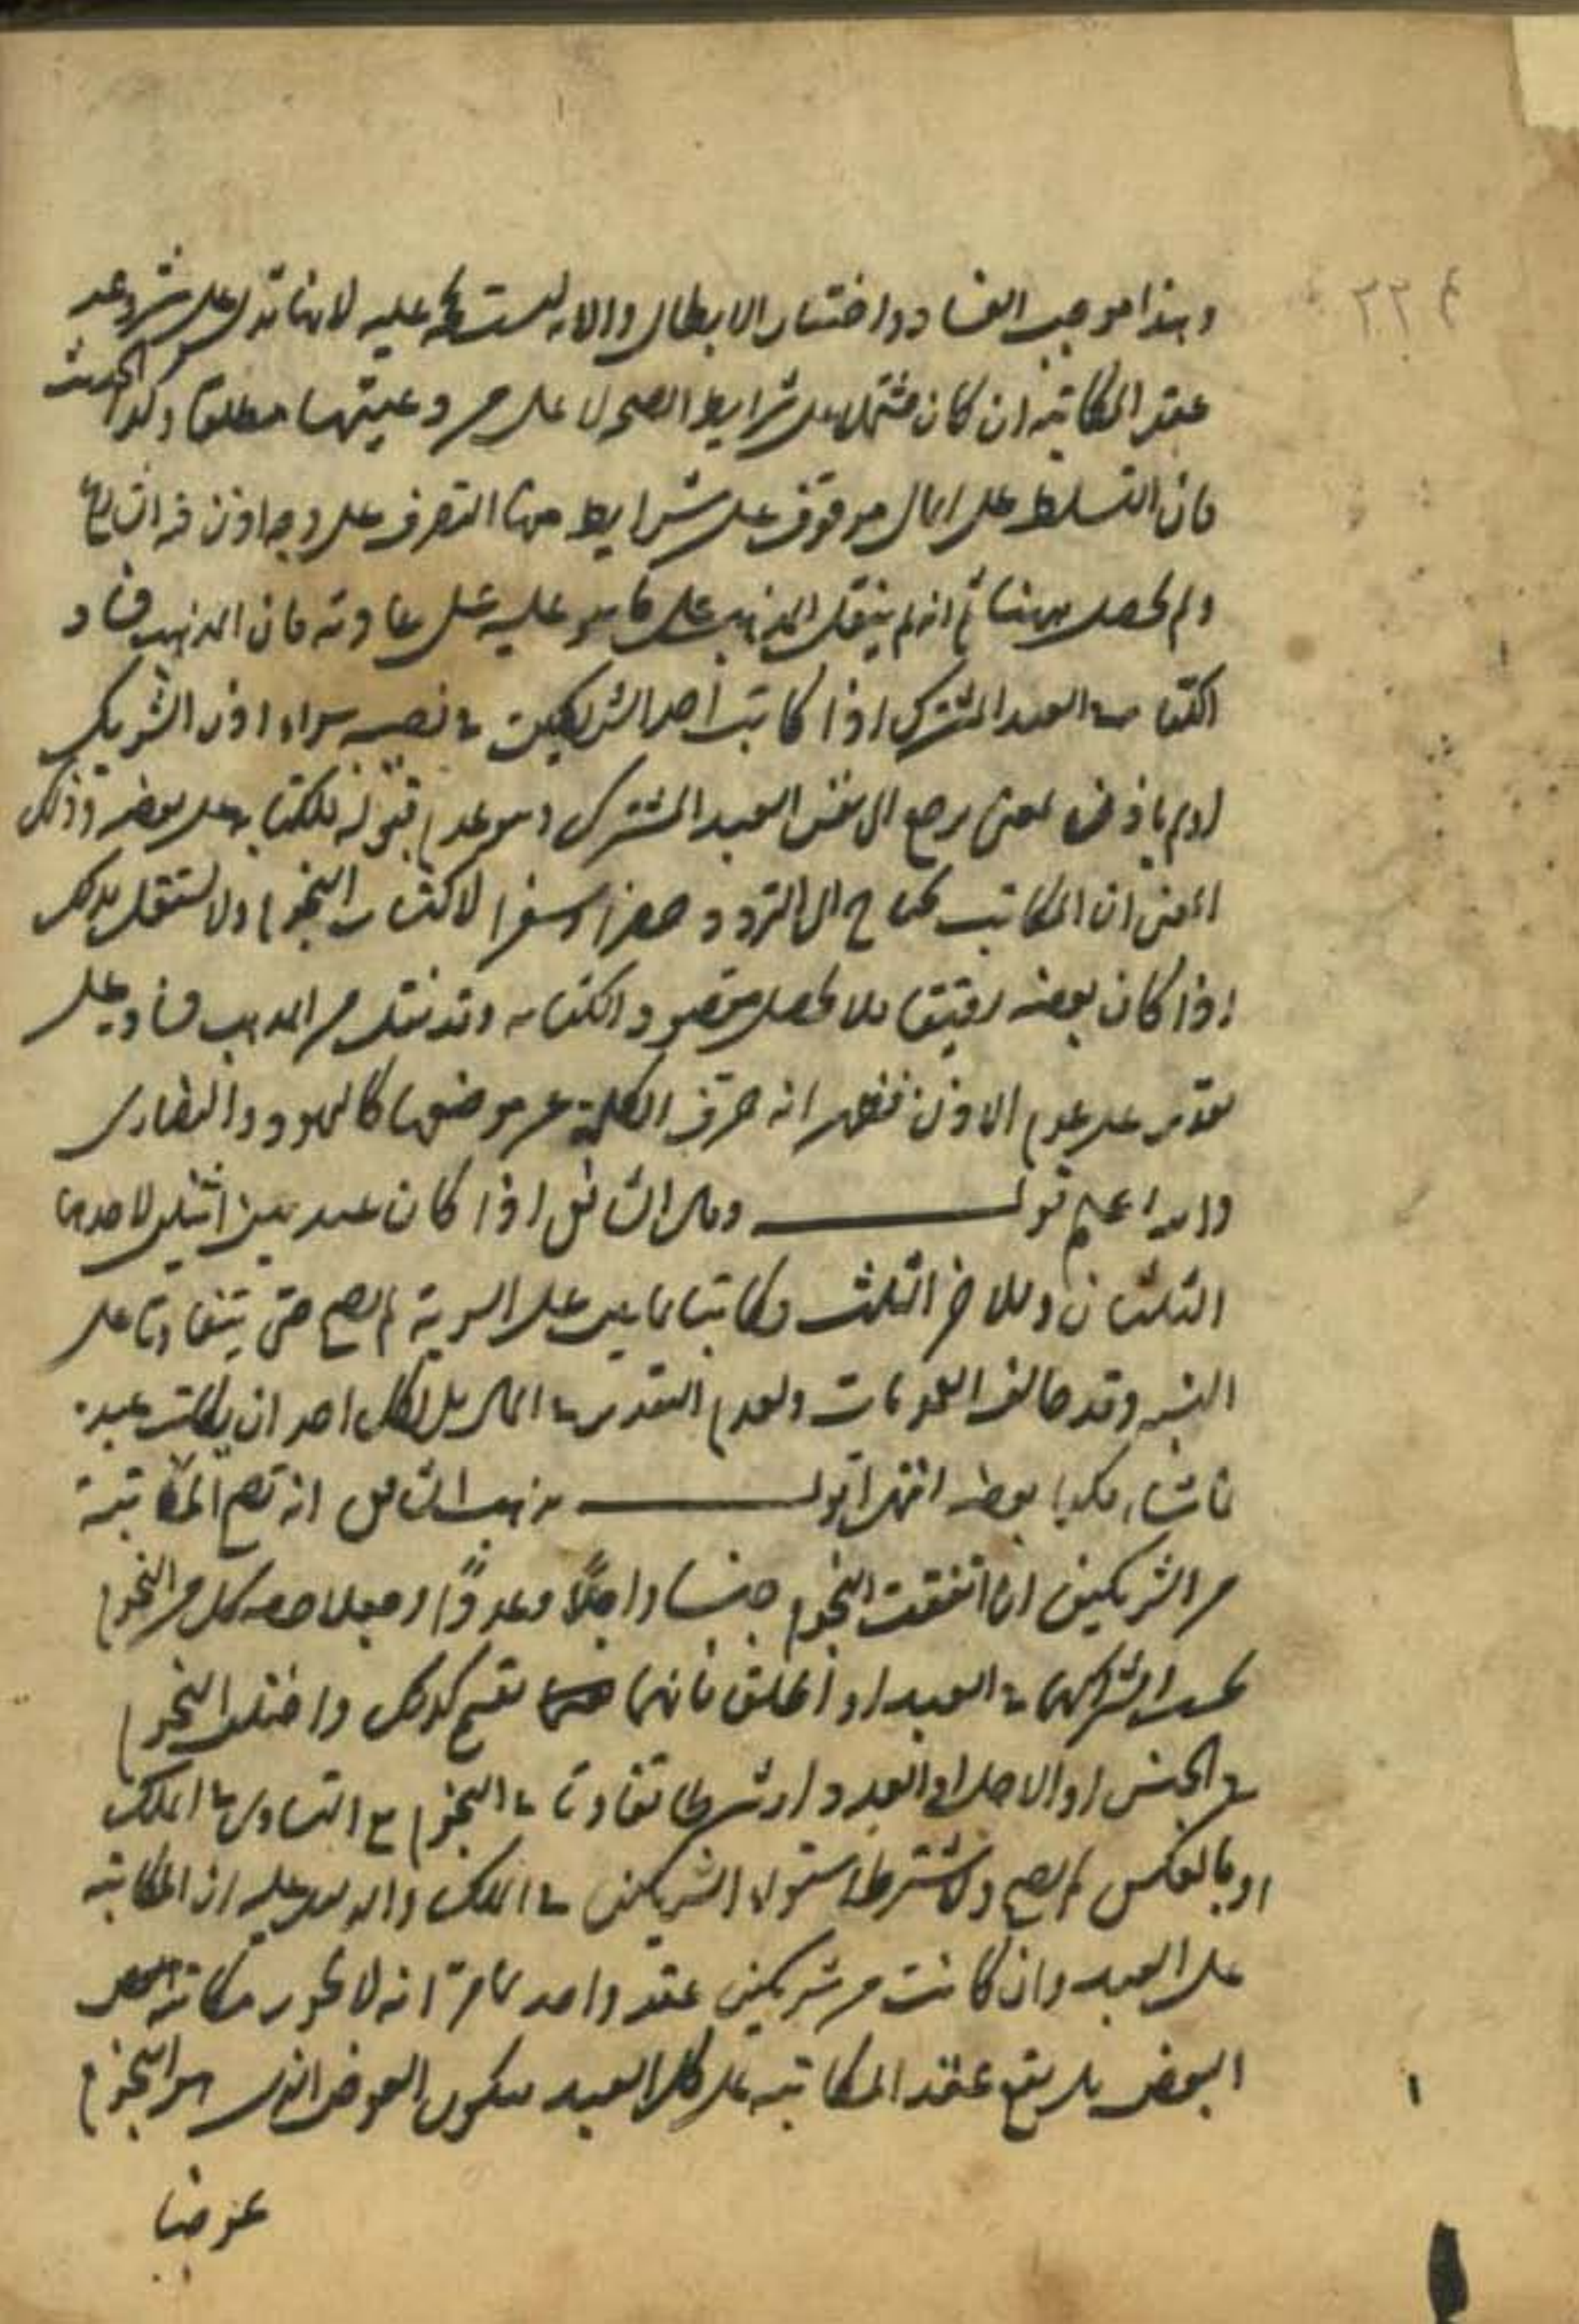 وهذا موجب الفساد واختار الابطال والآية ليست حجة عليه لانها تدل على مشروعية
عقد المكاتبة ان كان مشتملا على شرايط الصحة لا على مشروعيتها مطلقا وكذا الحديث
فان التسلط على المال موقوف على شرايط منها التصرف على وجه اذن فيه الشارع
ولم يحصل ههنا ثم انه لم ينقل المذهب على ما هو عليه على عادته فان المذهب فساد
الكتابة في العبد المشترك اذا كاتب احد الشريكين في نصيبه سواء اذن الشريك
او لم ياذن لمعنى يرجع الى نفس العبد المشترك وهو عدم قبوله للكتابة على بعضه وذلك
المعنى ان المكاتب يحتاج الى التردد حضرا وسفرا لاكتساب النجوم ولا يستقل بذلك
اذا كان بعضه رقيقا فلا يحصل مقصود الكتابة وقد نقل من المذهب فساده على
تقدير عدم الاذن فظهر انه حرف الكلمة عن موضعها كاليهود والنصارى
والله اعلم قوله وقال الشافعي اذا كان عبد بين اثنين لاحدهما
الثلثان وللاخر الثلث وكاتباه بمايتين على السوية لم يصح حتى يتفاوتا على
النسبة وقد خالف العمومات ولعدم التقدير في المال بل لكل احد ان يكاتب عبده
بما شاء فكذا بعضه انتهى اقول مذهب الشافعي انه تصح المكاتبة
من الشريكين ان اتفقت النجوم جنسا واجلا وعددا وجعلا حصة كل من النجوم
بحسب اشتراكهما في العبد او اطلق فانها تقسم كذلك وان اختلف النجوم
في الجنس او الاجل او العدد او شرطا تفاوتا في النجوم مع التساوي في الملك
او بالعكس لم يصح ولا يشترط استواء الشريكين في الملك والدليل عليه ان المكاتبة
على العبد وان كانت من شريكين عقد واحد لما مر انه لا يجوز مكاتبة بعض
البعض بل يقع عقد المكاتبة على كل العبد فيكون العوض الذي هو النجوم
عوضا